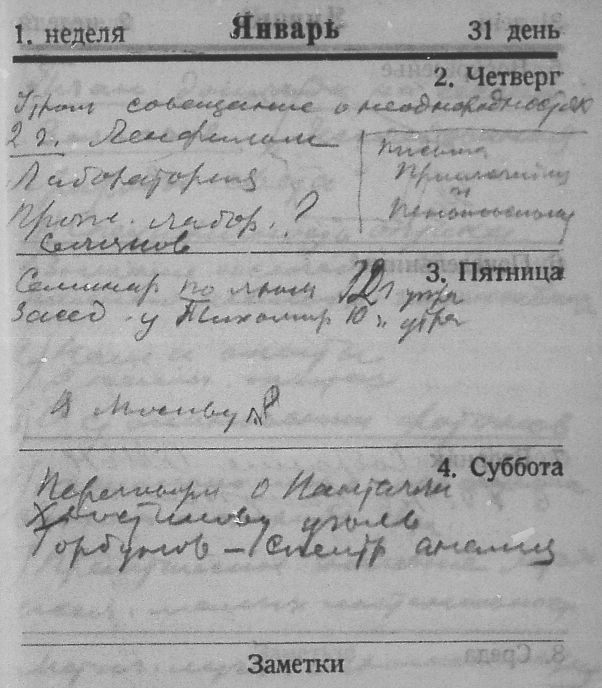 1. неделя Январь 31 день
2. Четверг
Утром совещание о неоднородностях
2 ч. Ленфильм
письма
Лаборатория
и
Пром. лабор. ?
Селинов
3. Пятница
Семинар по 12 ч утра
Засед. у Тихомир 10 ч. утра
В Москву ?
4. Суббота
Переговоры о
уголь
Горбунов – спектр анализ
Заметки